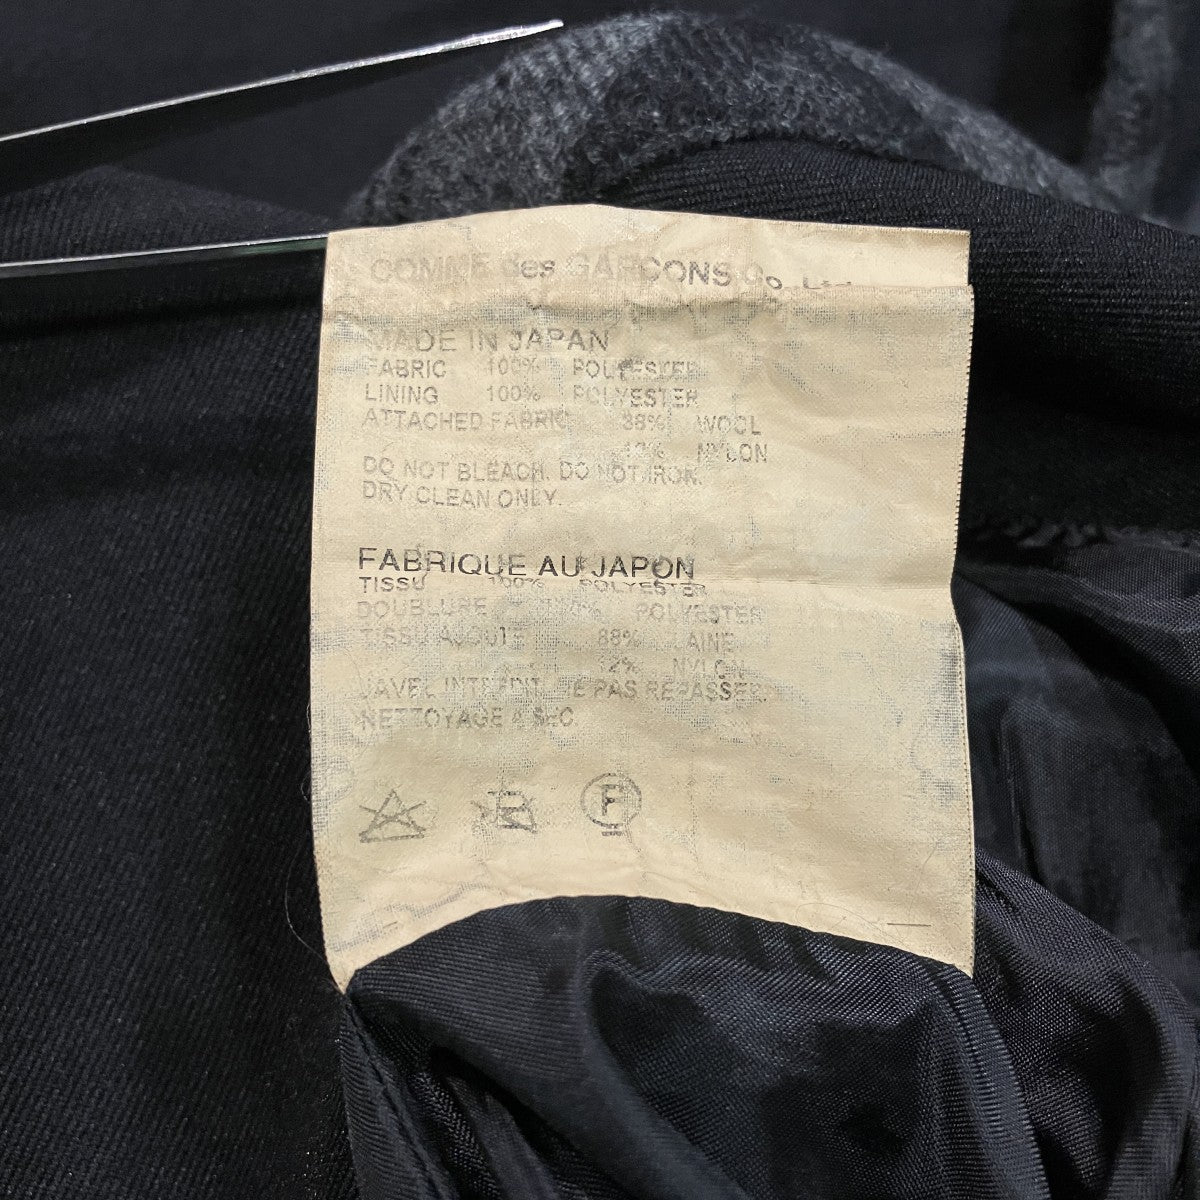 COMME des GARCONS Co. Ltd
MADE IN JAPAN
FABRIC 100% POLYESTER
LINING 100% POLYESTER
ATTACHED FABRIC 88% WOOL
12% NYLON
DO NOT BLEACH. DO NOT IRON.
DRY CLEAN ONLY.
FABRIQUE AU JAPON
TISSU 100% POLYESTER
DOUBLURE 100% POLYESTER
TISSU AJOUTE 88% LAINE
12% NYLON
JAVEL INTERDIT. NE PAS REPASSER.
NETTOYAGE A SEC.
F